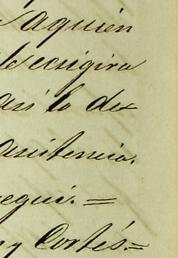 aquien
le exigira
asi lo de
asistencia.
egui.=
y Cortés=